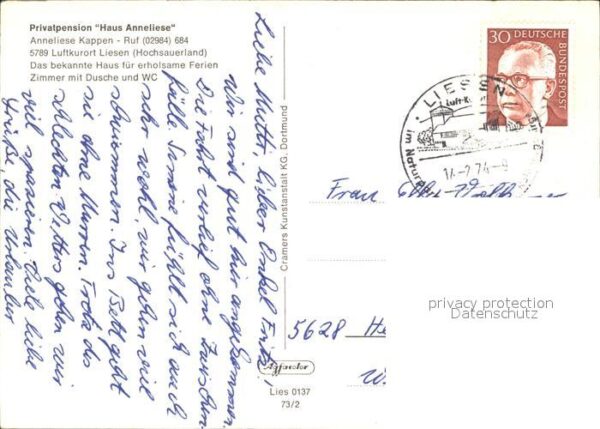 Privatpension "Haus Anneliese"
Anneliese Kappen - Ruf (02984) 684
5789 Luftkurort Liesen (Hochsauerland)
Das bekannte Haus für erholsame Ferien
Zimmer mit Dusche und WC
Liebe Mutti, lieber Onkel Fritz,
Wir sind gut hier angekommen.
Die Fahrt verlief ohne Zwischen-
fälle. Simone fühlt sich auch
sehr wohl, wir gehen viel
schwimmen. Ins Bett geht
sie ohne Murren. Trotz des
schlechten Wetters gehen wir
viel spazieren. Viele liebe
Grüße, die Urlauber
Cramers Kunstanstalt KG, Dortmund
30 DEUTSCHE
BUNDESPOST
LIESEN
Luft-K
im Natur
14.-7.74-9
Frau
5628 He
Lies 0137
73/2
privacy protection
Datenschutz